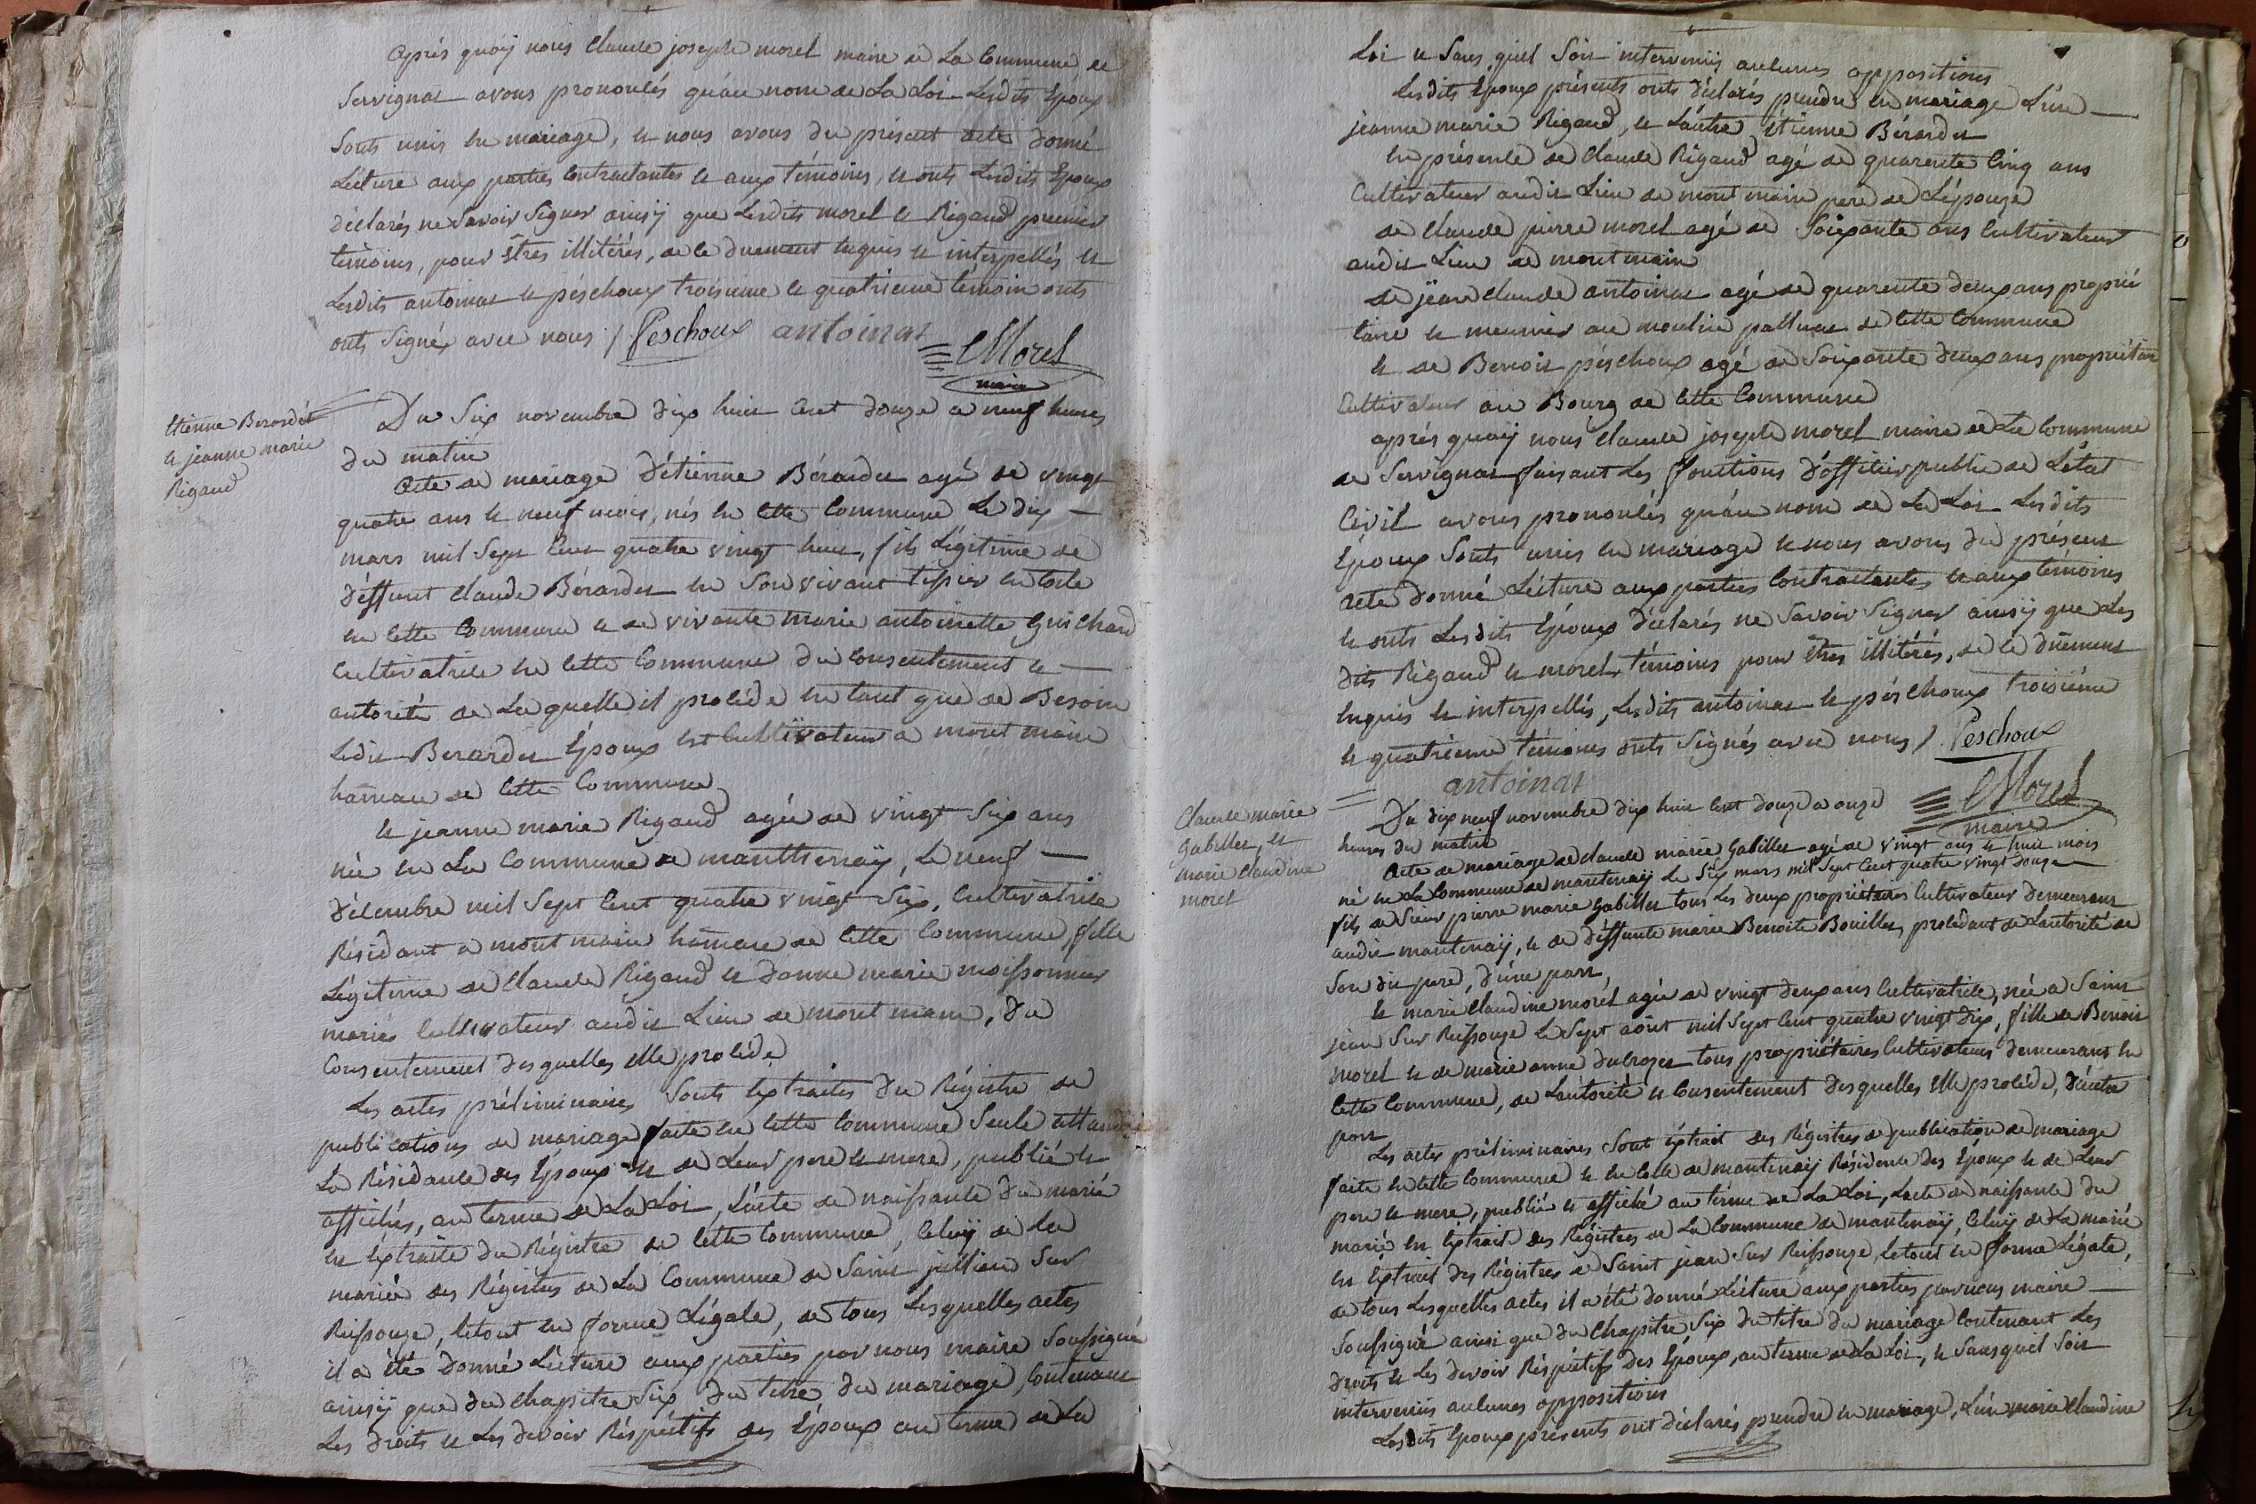 après quoÿ nous Claude joseph morel maire de La Commune de
Servignat avons prononcés qu'au nom de La Loi Lesdits Epoux
Sonts unis en mariage, et nous avons du présent acte donné
Lecture aux parties Contractantes et aux témoins, et onts Lesdits Epoux
déclarés ne Savoir Signer ainsÿ que Lesdits morel et Rigaud premier
témoins, pour êtres illitérés, de ce duement enquis et interpellés et
Lesdits antoinat et péschoux troisieme et quatrieme témoin onts
onts Signés avec nous / Peschoux antoinat
CMorel
maire
Etienne Berardet
et jeanne marie
Rigaud
Du Six novembre dix huit Cent douze a neuf heures
du matin
Acte de mariage d'étienne Bérardet agé de vingt
quatre ans et neuf mois, nés en Cette Commune Le dix
mars mil Sept Cent quatre vingt huit, fils Légitime de
déffunt Claude Bérardet en Son vivant tissier en toile
en Cette Commune et de vivante marie antoinette Guichard
Cultivatrice en Cette Commune du Consentement et
autorité de La quelle il procéde en tant que de Besoin
Ledit Berardet Epoux est Cultivateur a mont main
hameau de Cette Commune
et jeanne marie Rigaud agée de vingt Six ans
née en La Commune de manthenaÿ, Le neuf
décembre mil Sept Cent quatre vingt Six, Cultivatrice
Résidant a mont main hameau de Cette Commune fille
Légitime de Claude Rigaud et Danne marie moissonnier
mariés Cultivateur audit Lieu de mont main, du
Consentement des quelles elle procéde
Les actes préliminaires Sonts Extraites du Régistre de
publications de mariage faite en Cette Commune Seule attandu
La Résidance des Epoux et de Leur pere et mere, publié et
affichés, au terme de La Loi, L'acte de naissance du marié
et Extraite du Régistre de Cette Commune, Celuÿ de La
mariée des Régistres de La Commune de Saint jullien Sur
Reissouze, Le tout en forme Légale, de tous Lesquelles actes
il a été donné Lécture aux parties par nous maire Soussigné
ainsÿ que du Chapitre Six du titre du mariage, Contenant
Les droits et Les devoir Réspéctifs des Epoux au terme de La
Loi et Sans quil Soit intervenus aulunes oppositions
Lesdits Epoux présents onts déclarés prendre en mariage L'un
jeanne marie Rigaud, et L'autre étienne Bérardet
en présence de Claude Rigaud agé de quarente Cinq ans
Cultivateur audit Lieu de mont main pere de L'épouze
de Claude pierre morel agé de Soixante ans Cultivateur
audit Lieu de mont main
de jean Claude antoinat agé de quarente deux ans proprié
taire et meunier au moulin palluat de Cette Commune
et de Benoit péschoux agé de Soixante deux ans propriétaire
Cultivateur au Bourg de Cette Commune
après quoÿ nous Claude joseph morel maire de La Commune
de Servignat faisant Les fonctions d'officier public de L'état
Civil avons prononcés qu'au nom de La Loi Lesdits
Epoux Sonts unis en mariage et nous avons du présent
acte donné Lécture aux parties Contractantes et aux témoins
et onts Lesdits Epoux déclarés ne Savoir Signer ainsÿ que Les
dits Rigaud et morel témoins pour êtres illitérés, de ce duement
enquis et interpellés, Lesdits antoinat et péschoux troisiéme
et quatrieme témoins onts Signés avec nous / Peschoux
antoinat
CMorel
maire
Claude marie
Gabillet et
marie Claudine
morel
Du dix neuf novembre dix huit Cent douze a onze
heures du matin
Acte de mariage de Claude marie Gabillet agé de vingt ans et huit mois
né en La Commune de mantenaÿ Le Six mars mil Sept Cent quatre vingt douze
fils de Sieur pierre marie Gabillet tous Les deux propriétaires Cultivateur demeurant
audit mantenaÿ, et de déffunte marie Benoite Bouillet, procédant de L'autorité de
Son dit pere, d'une part
et marie Claudine morel agée de vingt deux ans Cultivatrice, née a Saint
jean Sur Reissouze Le Sept août mil Sept Cent quatre vingt dix, fille de Benoit
morel et de marie anne dubrozet tous propriétaires Cultivateurs demeurant en
Cette Commune, de L'autorité et Consentement des quelles elle procéde, d'autre
part
Les actes préliminaires Sont éxtrait des Régistres de publication de mariage
faite en Cette Commune et en Celle de mantenaÿ Résidence des Epoux et de Leur
pere et mere, publié et affiché au terme de La Loi, L'acte de naissance du
marié en éxtrait des Régistres de La Commune de mantenaÿ, Celuÿ de La mariée
en éxtrait des Régistres de Saint jean Sur Reissouze, Le tout en forme Légale,
de tous Lesquelles actes il a été donné Lécture aux parties par nous maire
Soussigné ainsi que du Chapitre Six du titre du mariage Contenant Les
droits et Les devoir Réspéctifs des Epoux, au terme de La Loi, et Sans quil Soit
intervenus aulunes oppositions
Lesdits Epoux présents ont déclarés prendre en mariage, L'un marie Claudine